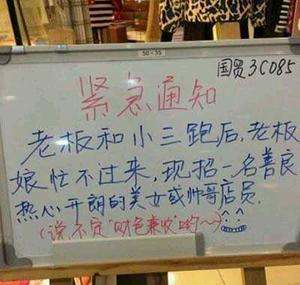 50×35
国贸3C085
紧急通知
老板和小三跑后,老板
娘忙不过来,现招一名善良
热心开朗的美女或帅哥店员.
(说不定"财色兼收"哟~)